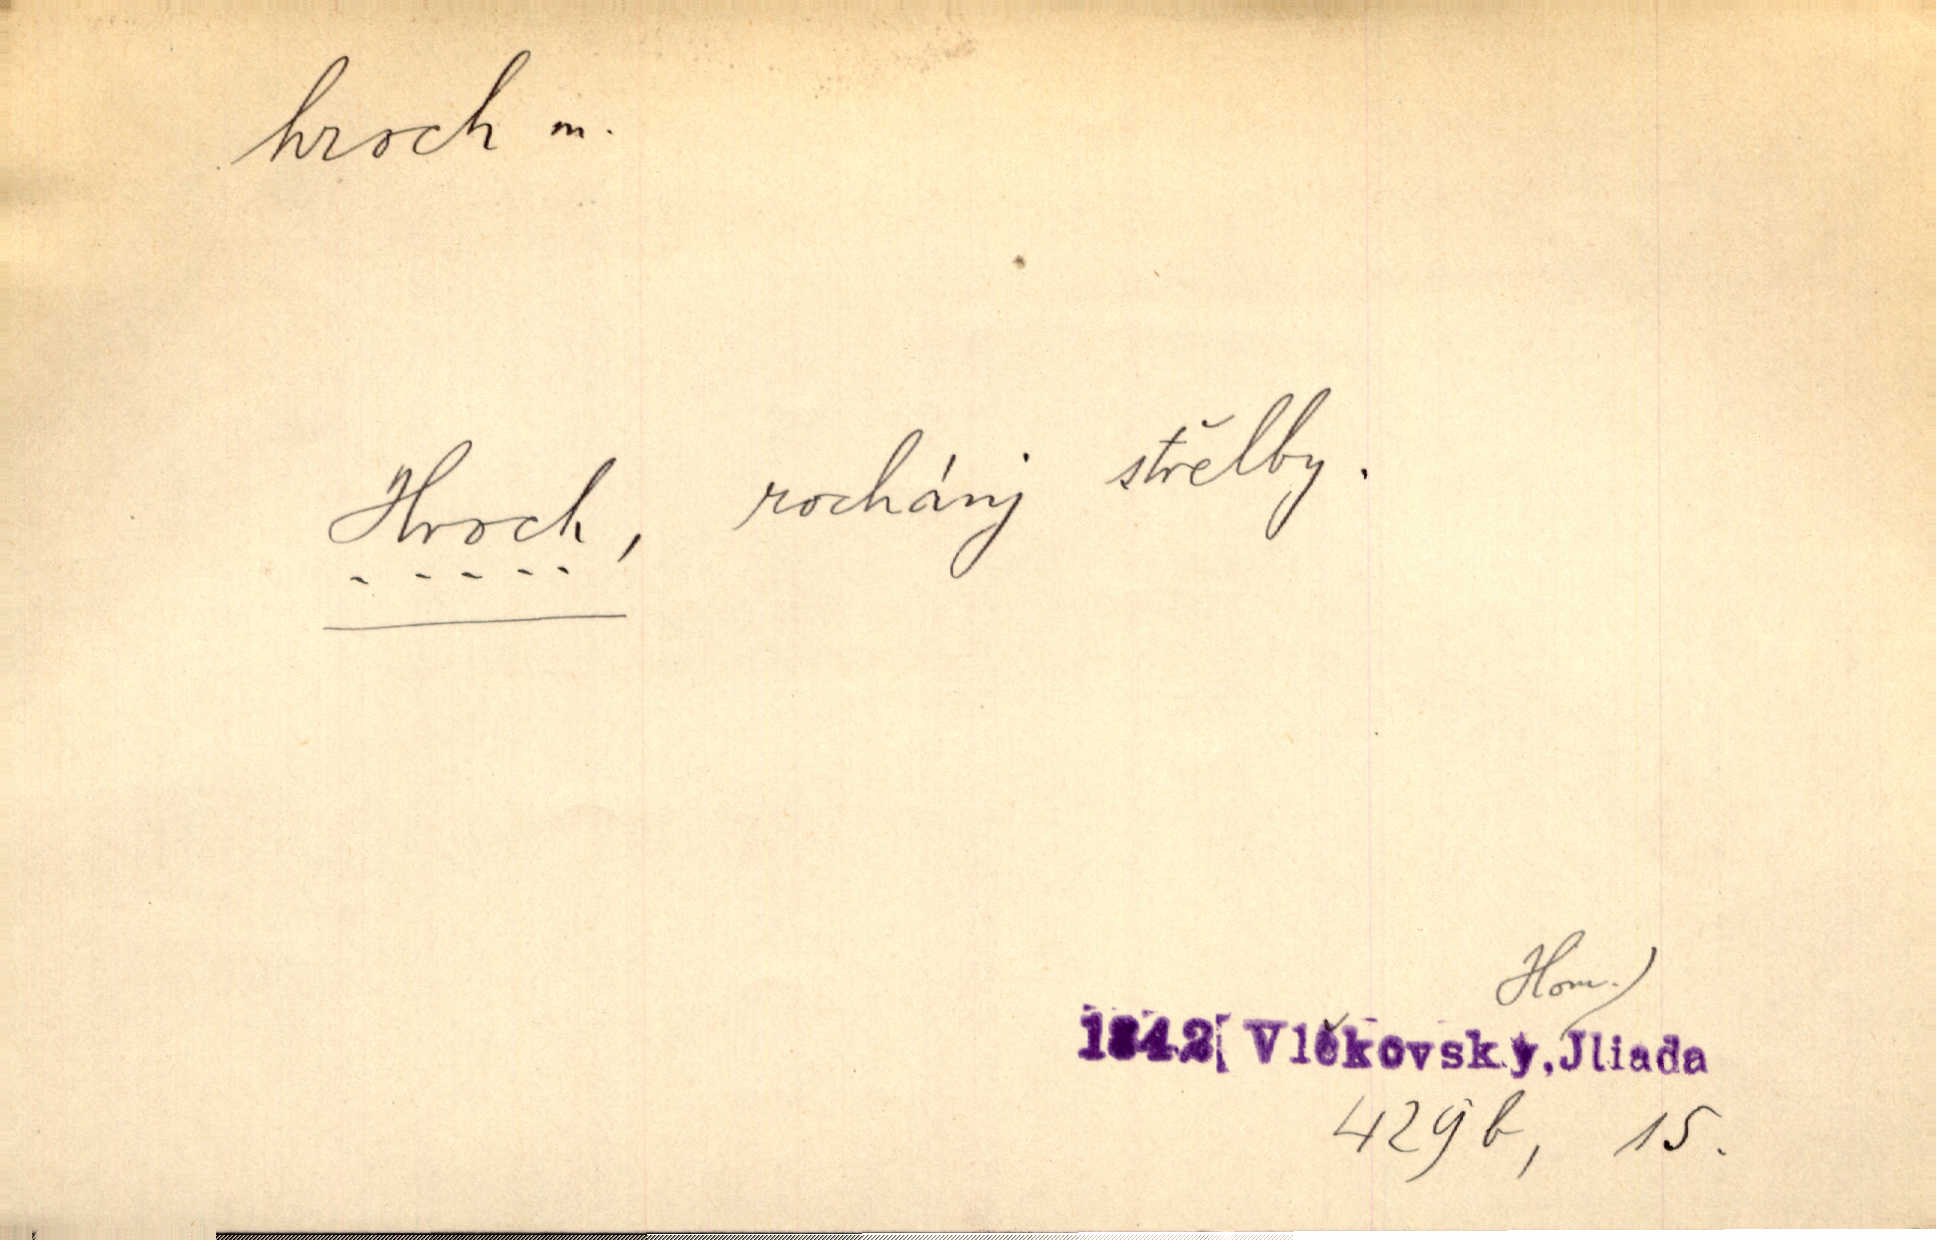 hroch m.
Hroch, rochánj střelby.
Hom.)
1842 Vlčkovský, Jliada
429 b, 15.